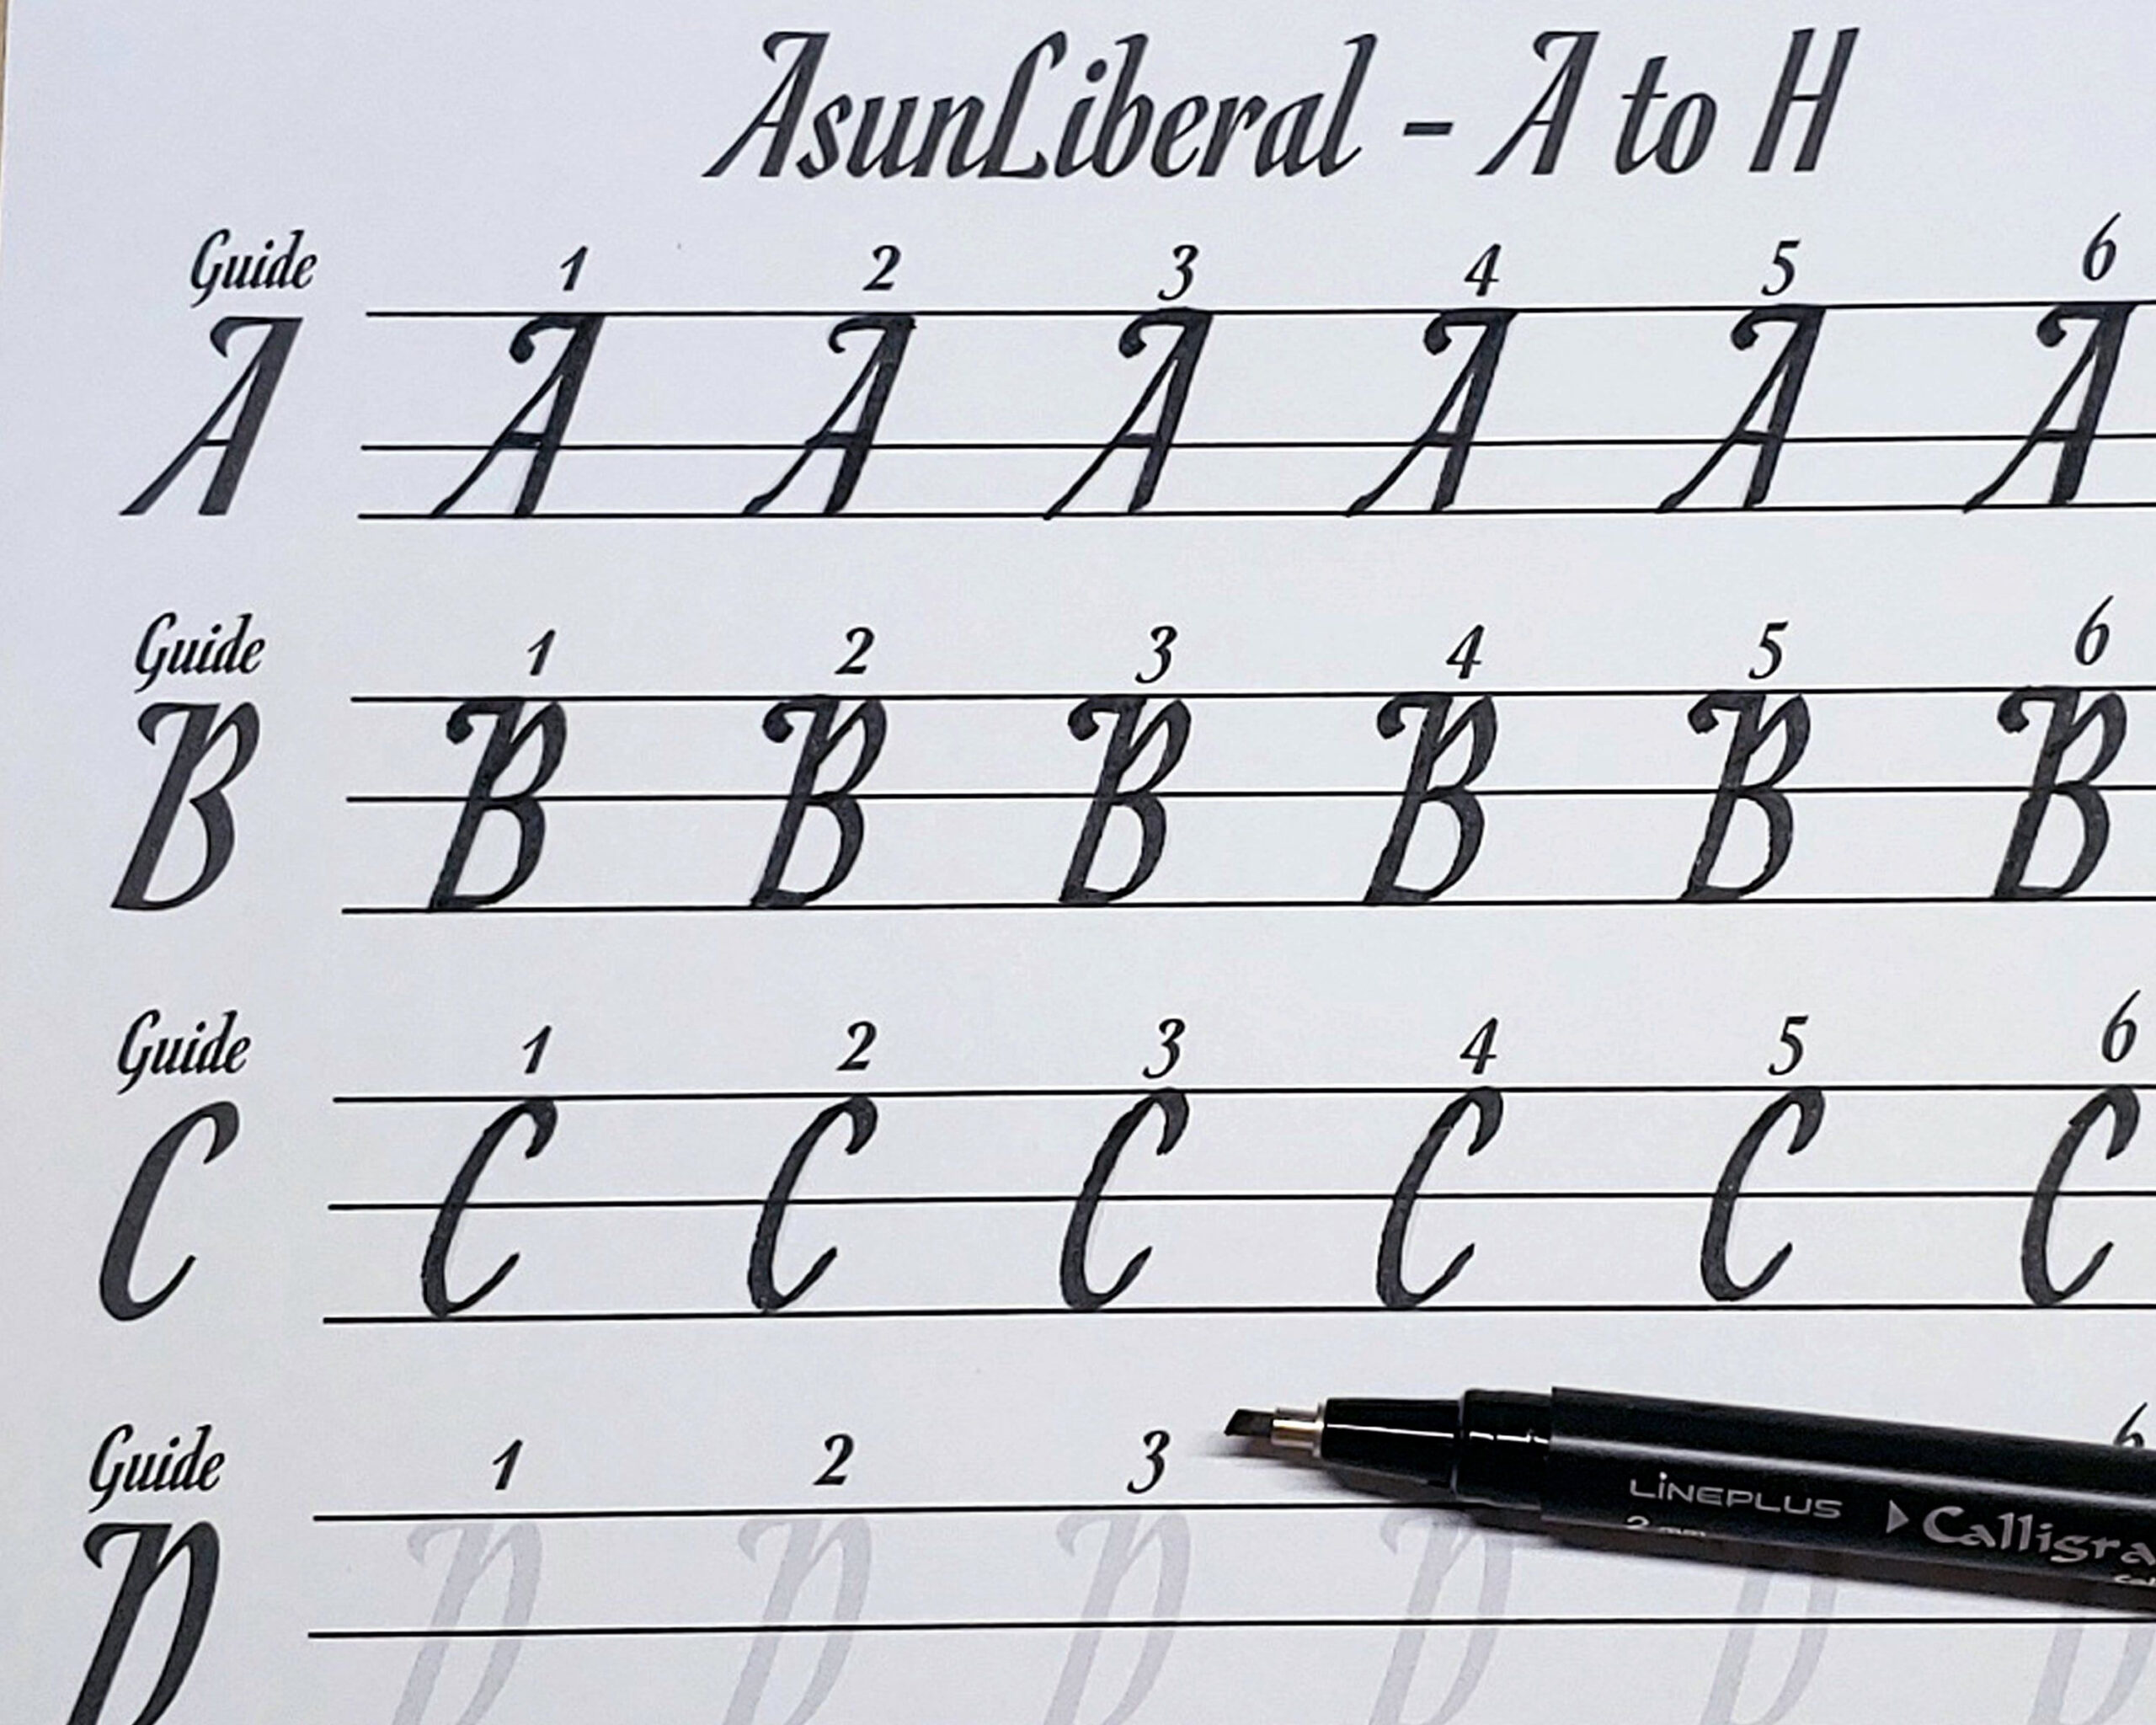 AsunLiberal - A to H
Guide 1 2 3 4 5 6
A A A A A A A
Guide 1 2 3 4 5 6
B B B B B B B
Guide 1 2 3 4 5 6
C C C C C C C
Guide 1 2 3 6
D D D D D D D
LINEPLUS Calligra
2 mm